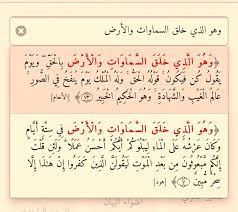 وهو الذي خلق السماوات والأرض
﴿وَهُوَ الَّذِي خَلَقَ السَّمَاوَاتِ وَالْأَرْضَ بِالْحَقِّ وَيَوْمَ
يَقُولُ كُن فَيَكُونُ قَوْلُهُ الْحَقُّ وَلَهُ الْمُلْكُ يَوْمَ يُنفَخُ فِي الصُّورِ
عَالِمُ الْغَيْبِ وَالشَّهَادَةِ وَهُوَ الْحَكِيمُ الْخَبِيرُ ٧٣﴾ [الأنعام]
﴿وَهُوَ الَّذِي خَلَقَ السَّمَاوَاتِ وَالْأَرْضَ فِي سِتَّةِ أَيَّامٍ
وَكَانَ عَرْشُهُ عَلَى الْمَاءِ لِيَبْلُوَكُمْ أَيُّكُمْ أَحْسَنُ عَمَلًا وَلَئِن قُلْتَ
إِنَّكُم مَّبْعُوثُونَ مِن بَعْدِ الْمَوْتِ لَيَقُولَنَّ الَّذِينَ كَفَرُوا إِنْ هَٰذَا إِلَّا
سِحْرٌ مُّبِينٌ ٧﴾ [هود]
أضواء البيان